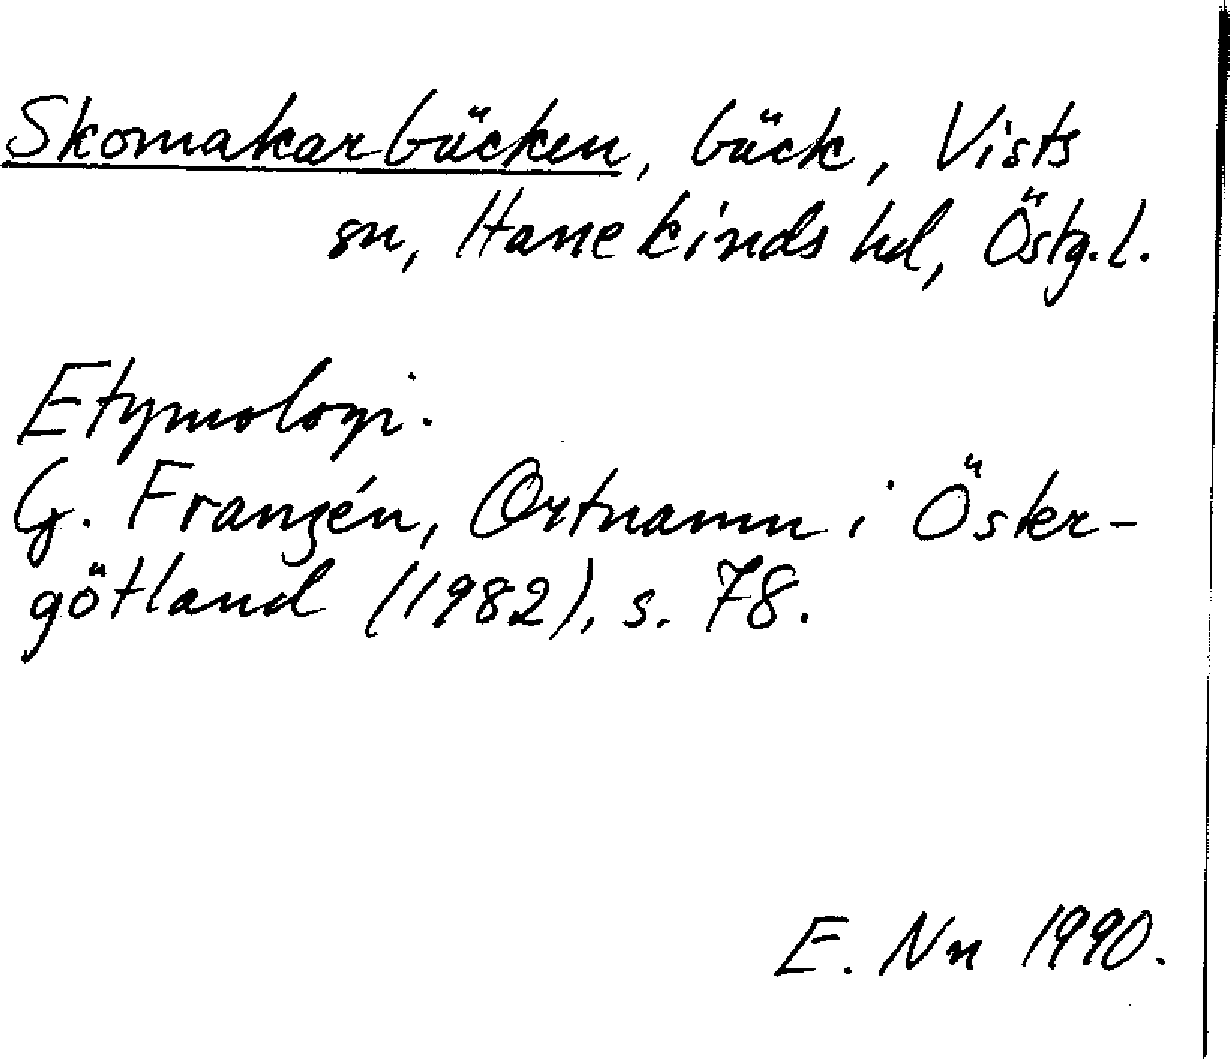 Skomakarbäcken, bäck, Vists
sn, Hanekinds hd, Östg.l.
Etymologi.
G. Franzén, Ortnamn i Öster-
götland (1982), s. 78.
E. Nn 1990.